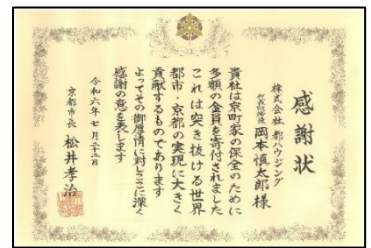 感謝状
株式会社 都ハウジング
代表取締役 岡本慎太郎 様
貴社は京町家の保全のために
多額の金員を寄付されました
これは突き抜ける世界
都市・京都の実現に大きく
貢献するものであります
よってその御厚情に対しここに深く
感謝の意を表します
令和六年七月二十三日
京都市長 松井孝治